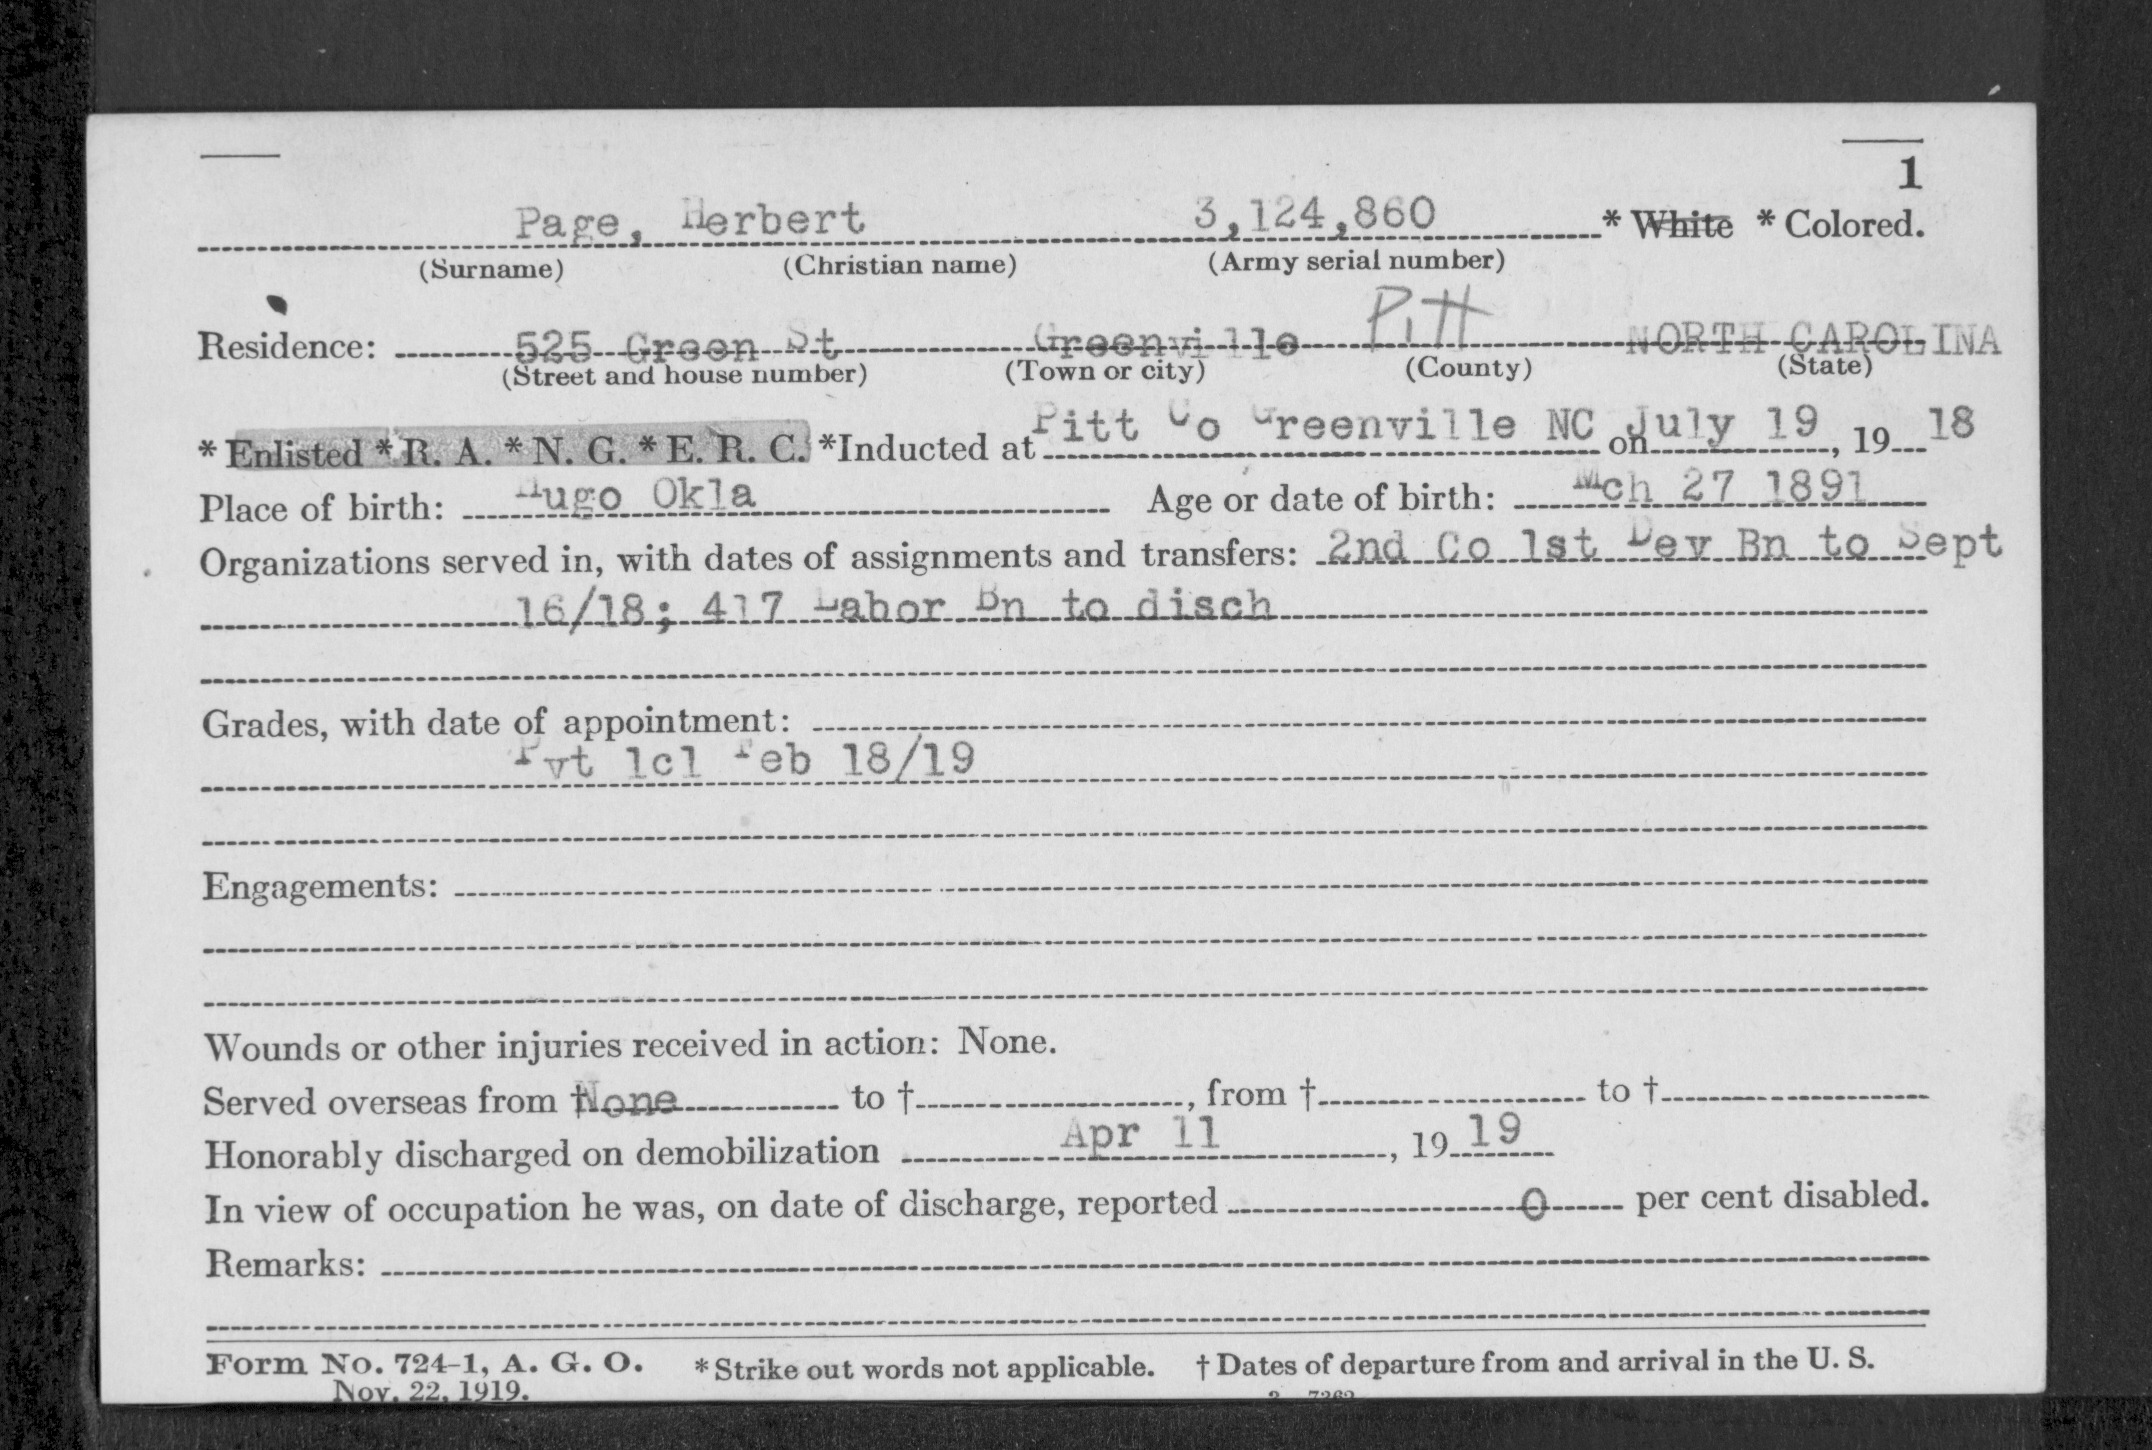 1
Page, Herbert 3,124,860 * White * Colored.
(Surname) (Christian name) (Army serial number)
Residence: 525 Green St Greenville Pitt NORTH CAROLINA
(Street and house number) (Town or city) (County) (State)
* Enlisted * R. A. * N. G. * E. R. C. *Inducted at Pitt Co Greenville NC on July 19, 19 18
Place of birth: Hugo Okla Age or date of birth: Mch 27 1891
Organizations served in, with dates of assignments and transfers: 2nd Co 1st Dev Bn to Sept
16/18; 417 Labor Bn to disch
Grades, with date of appointment:
Pvt 1cl Feb 18/19
Engagements:
Wounds or other injuries received in action: None.
Served overseas from † None to †, from † to †
Honorably discharged on demobilization Apr 11, 19 19
In view of occupation he was, on date of discharge, reported 0 per cent disabled.
Remarks:
Form No. 724-1, A. G. O. * Strike out words not applicable. † Dates of departure from and arrival in the U. S.
Nov. 22, 1919. 3—7362